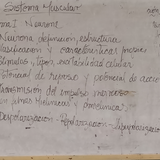 Sistema Muscular
Tema I Neurona
Neurona definición, estructura
clasificación y características
Estímulos, tipos, excitabilidad celular
Potencial de reposo y potencial de acción
Transmisión del impulso nervioso
en fibras mielínicas y amielínicas
Depolarización - Repolarización -